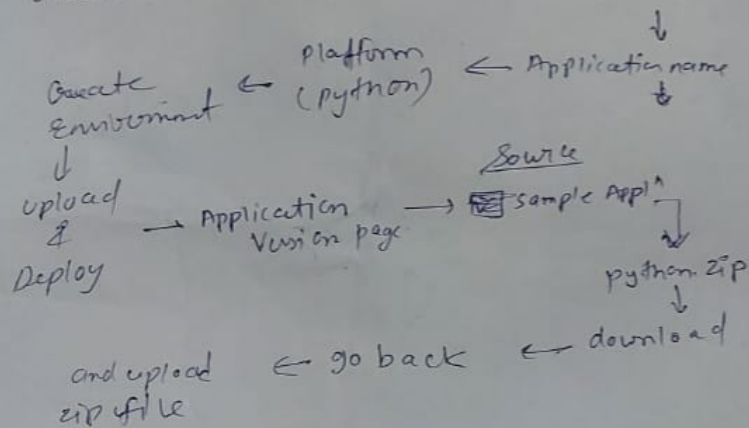 Create Enviroment ← platform (python) ← Application name
↓
upload & Deploy → Application Version page → Source sample Applⁿ
↓
python.zip
↓
download
and upload zip file ← go back ← download